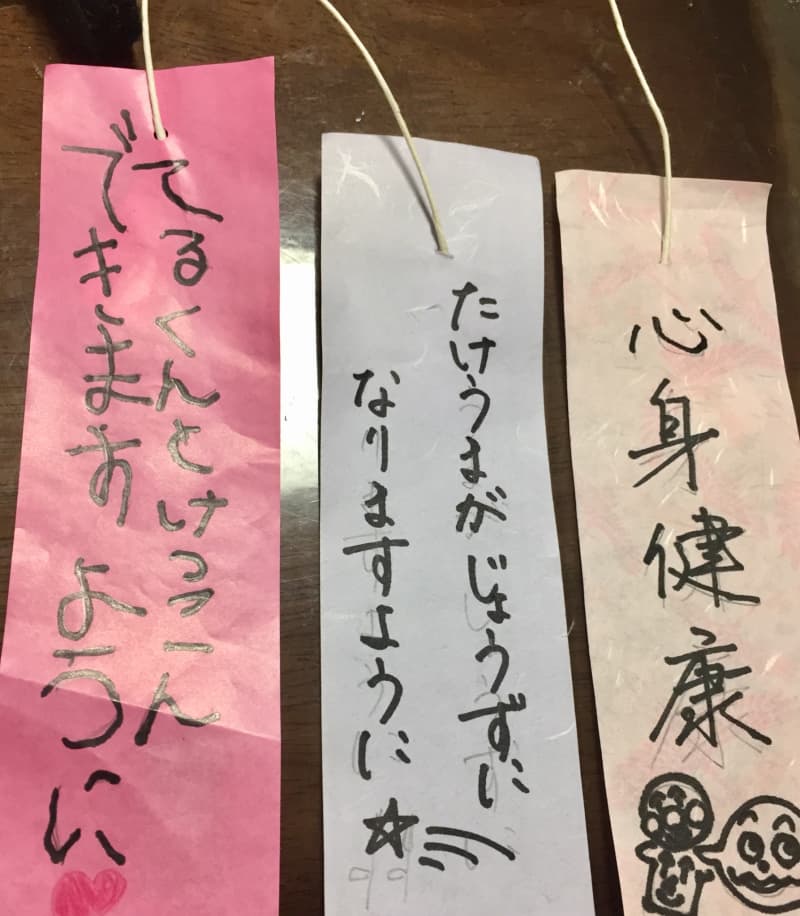 てるくんとけっこん
できますように
たけうまがじょうずに
なりますように
心身健康